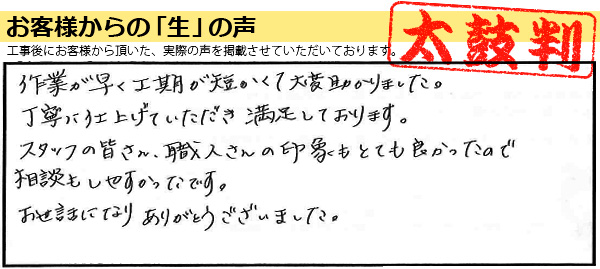 お客様からの「生」の声
太鼓判
工事後にお客様から頂いた、実際の声を掲載させていただいております。
作業が早く工期が短かくて大変助かりました。
丁寧に仕上げていただき満足しております。
スタッフの皆さん、職人さんの印象もとても良かったので
相談もしやすかったです。
お世話になりありがとうございました。